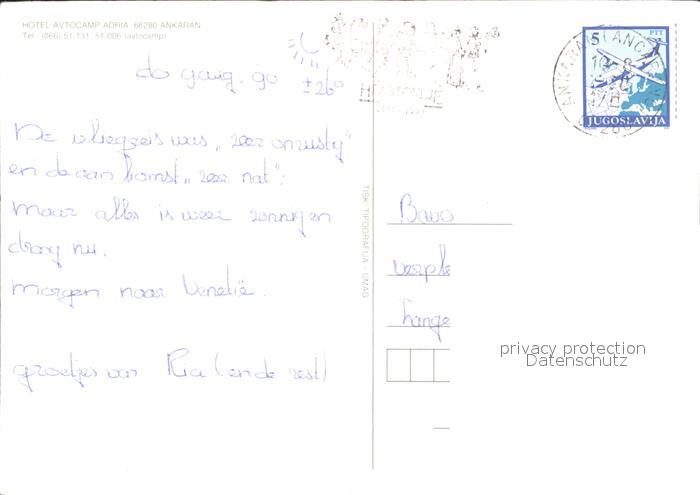 HOTEL AVTOCAMP ADRIA 66280 ANKARAN
Tel. (066) 51-131, 51-006 (avtocamp)
±26°
De vliegreis was „zeer onrustig"
en de aankomst „zeer nat":
maar alles is weer zonnig en
droog nu.
morgen naar Venetië.
groetjes van Ria (en de rest)
TISK: TIPOGRAFIJA - UMAG
5
PTT
JUGOSLAVIJA
Bavo
verple
hange
privacy protection
Datenschutz